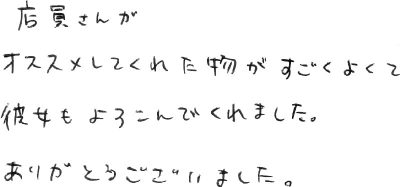 店員さんが
オススメしてくれた物がすごくよくて
彼女もよろこんでくれました。
ありがとうございました。